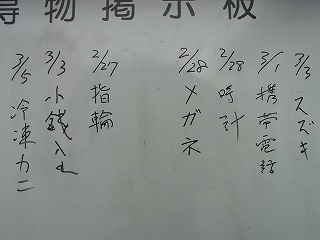 得物掲示板
3/3 スズキ
3/1 携帯電話
2/28 時計
2/28 メガネ
2/27 指輪
3/3 小銭入れ
3/5 冷凍カニ